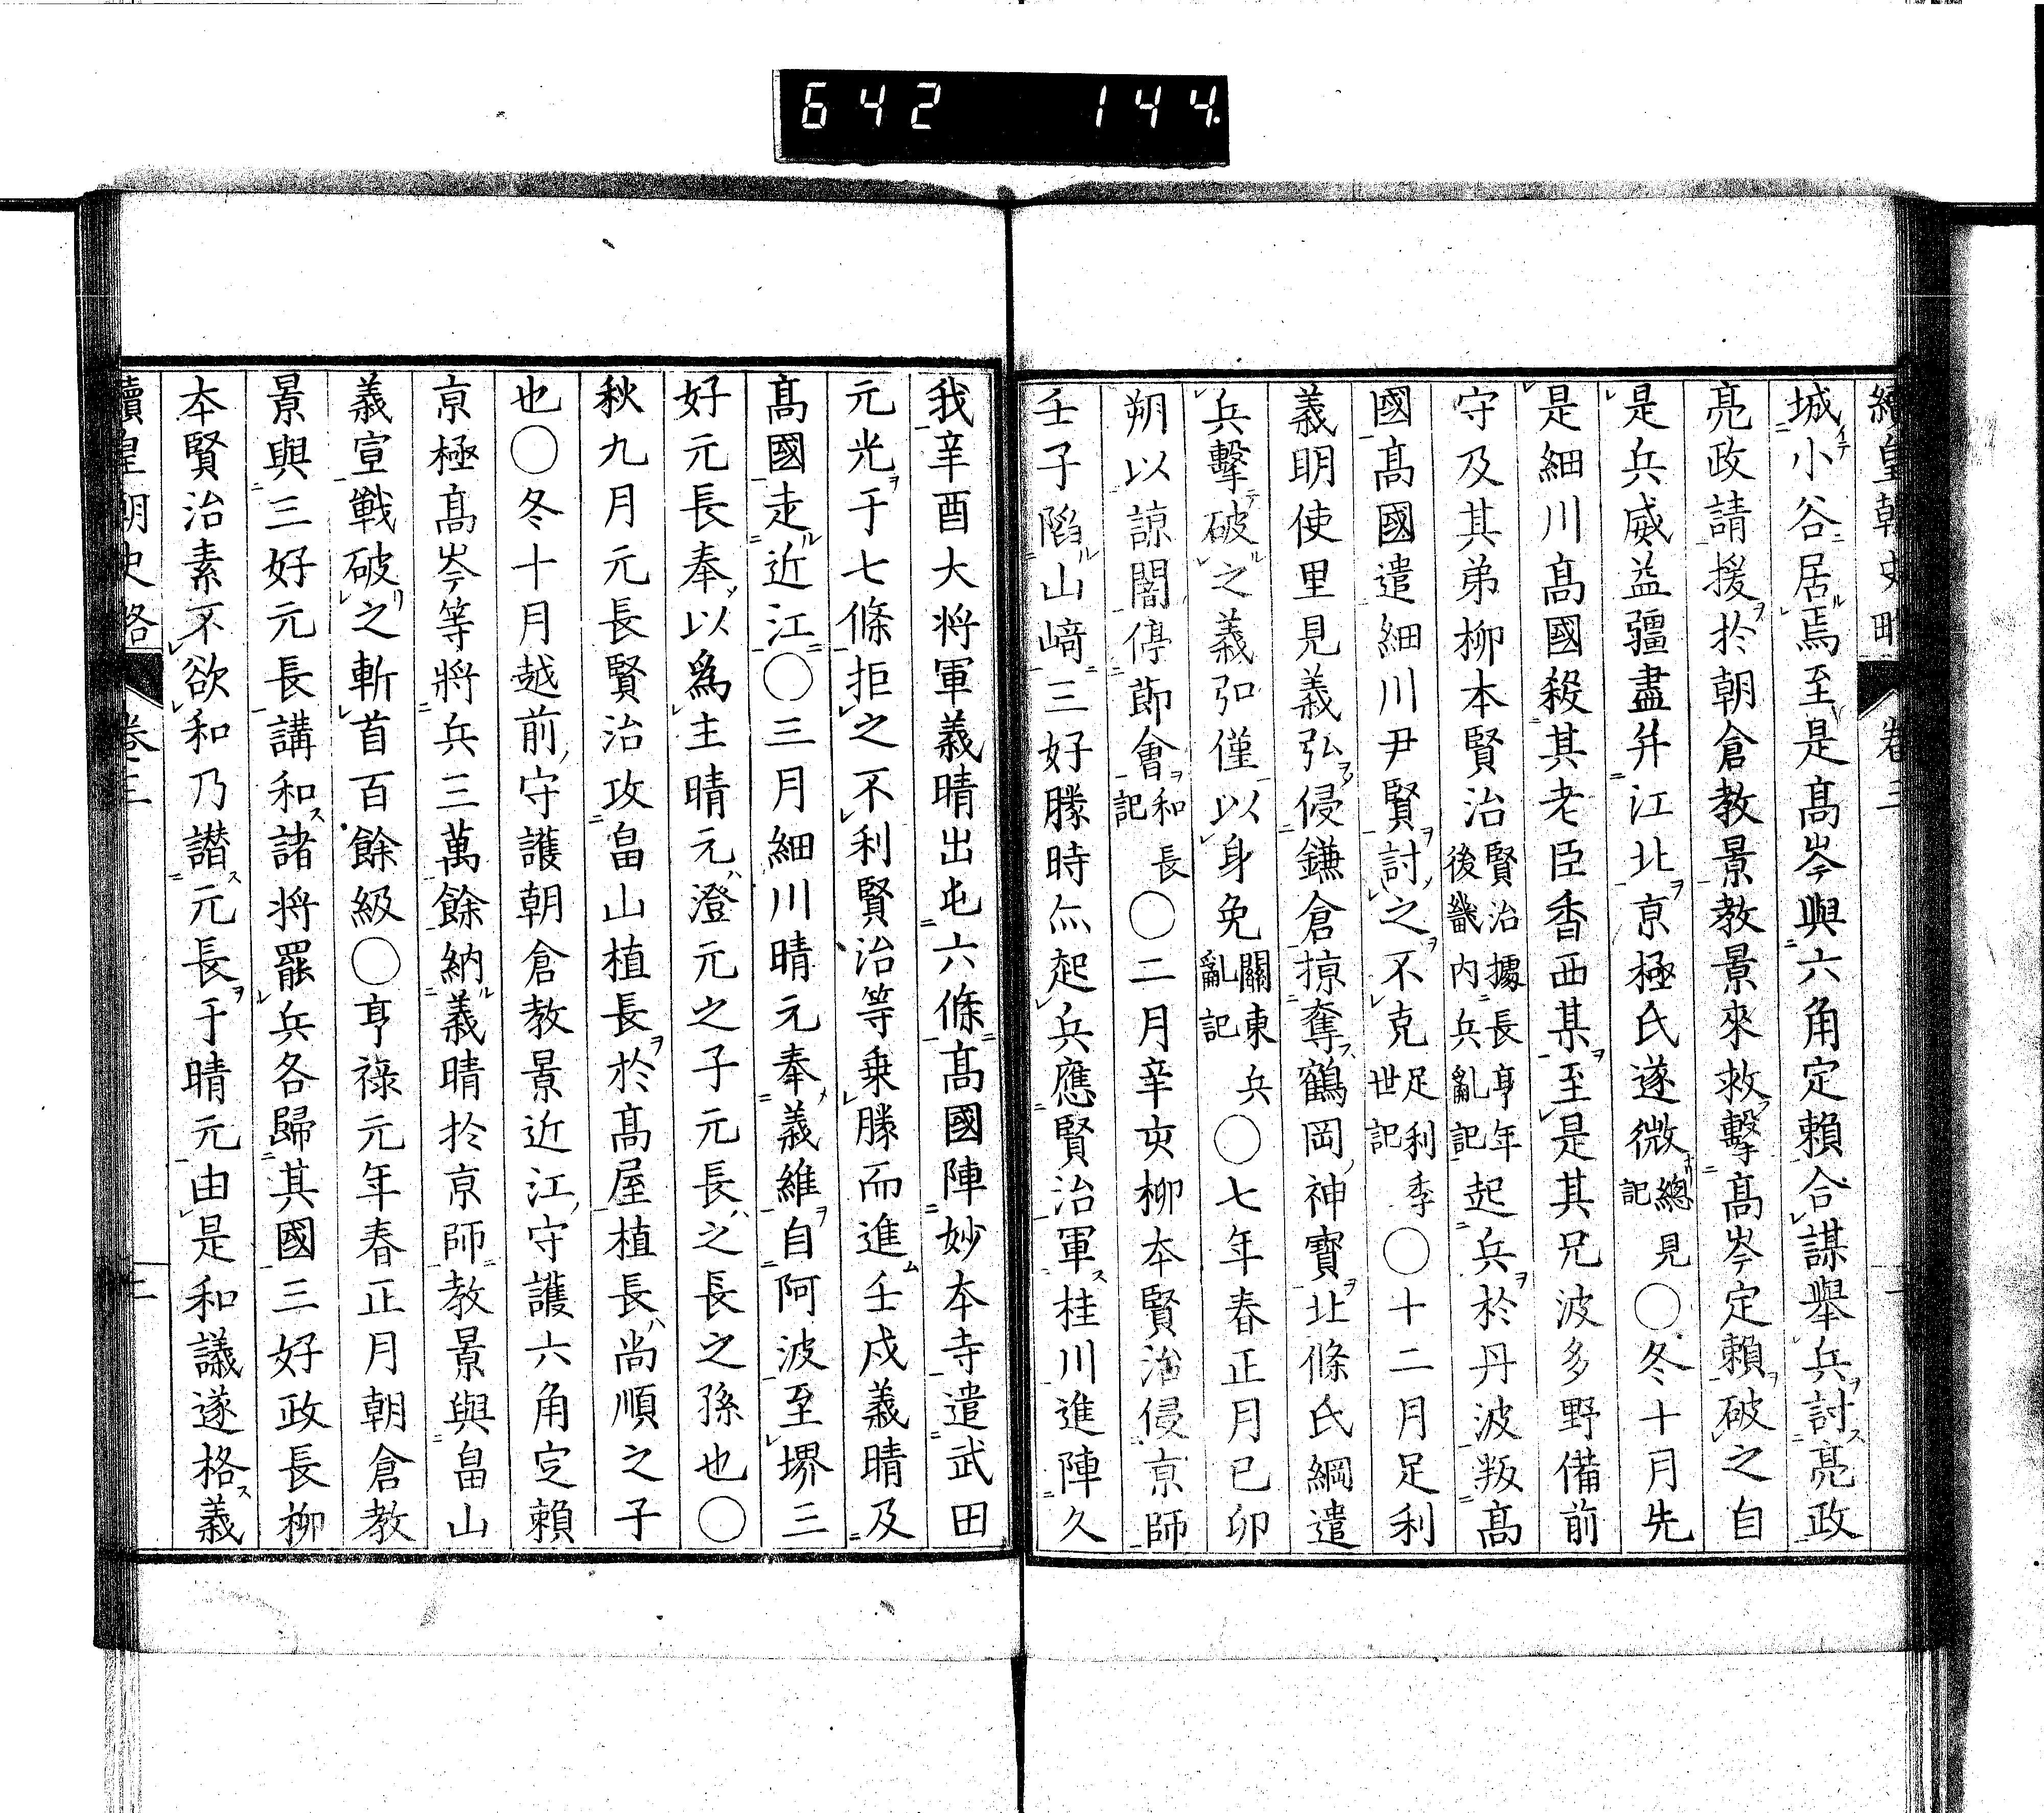 642 144
續皇朝史略 卷三
城小谷居焉至是髙岑與六角定賴合謀舉兵討亮政
亮政請援於朝倉教景教景來救擊髙岑定賴破之自
是兵威益疆盡幷江北京極氏遂微總見記○冬十月先
是細川髙國殺其老臣香西某至是其兄波多野備前
守及其弟柳本賢治賢治據長享年後畿内兵亂記起兵於丹波叛髙
國髙國遣細川尹賢討之不克足利季世記○十二月足利
義明使里見義弘侵鎌倉掠奪鶴岡神寶北條氏綱遣
兵擊破之義弘僅以身免關東兵亂記○七年春正月己卯
朔以諒闇停節會和長記○二月辛亥柳本賢治侵京師
壬子陷山﨑三好勝時亦起兵應賢治軍桂川進陣久
我辛酉大将軍義晴出屯六條髙國陣妙本寺遣武田
元光于七條拒之不利賢治等乗勝而進壬戌義晴及
髙國走近江○三月細川晴元奉義維自阿波至堺三
好元長奉以爲主晴元澄元之子元長之長之孫也○
秋九月元長賢治攻畠山植長於髙屋植長尚順之子
也○冬十月越前守護朝倉教景近江守護六角定賴
京極髙岑等將兵三萬餘納義晴於京師教景與畠山
義宣戰破之斬首百餘級○享祿元年春正月朝倉教
景與三好元長講和諸将罷兵各歸其國三好政長柳
本賢治素不欲和乃譖元長于晴元由是和議遂格義
續皇朝史略 卷三 二